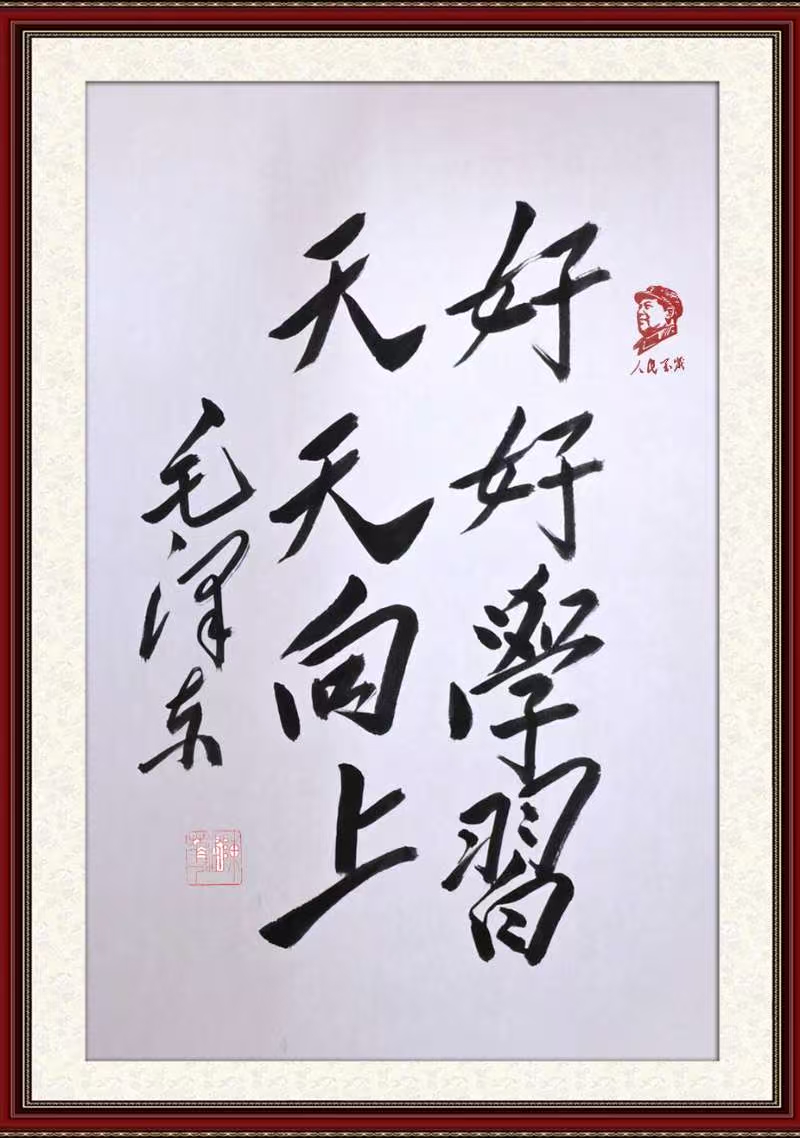 好好學習
天天向上
毛泽东
人民万岁